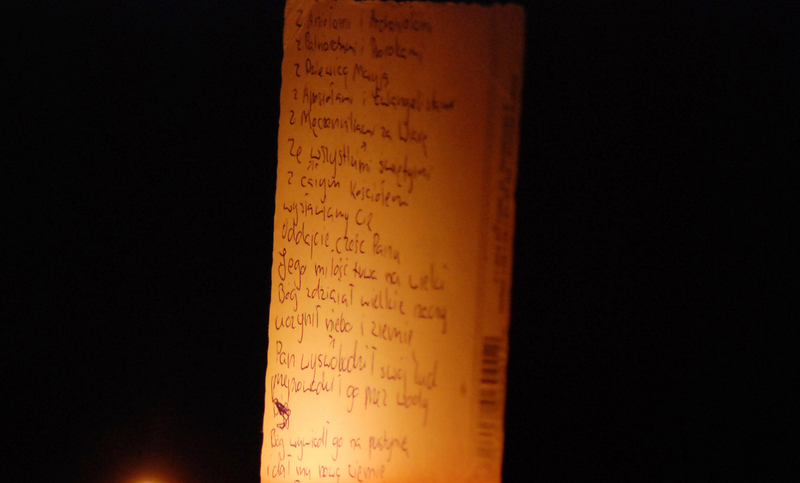 z Aniołami i Archaniołami
z Patriarchami i Prorokami
z Dziewicą Maryją
z Apostołami i Ewangelistami
z Męczennikami za Wiarę
Ze wszystkimi świętymi
z całym Kościołem
wysławiamy Cię
Oddajcie cześć Panu
Jego miłość trwa na wieki
Bóg zdziałał wielkie rzeczy
uczynił niebo i ziemię
Pan wyswobodził swój lud
przeprowadził go przez wody
Bóg wywiódł go na pustynię
i dał mu nową ziemię